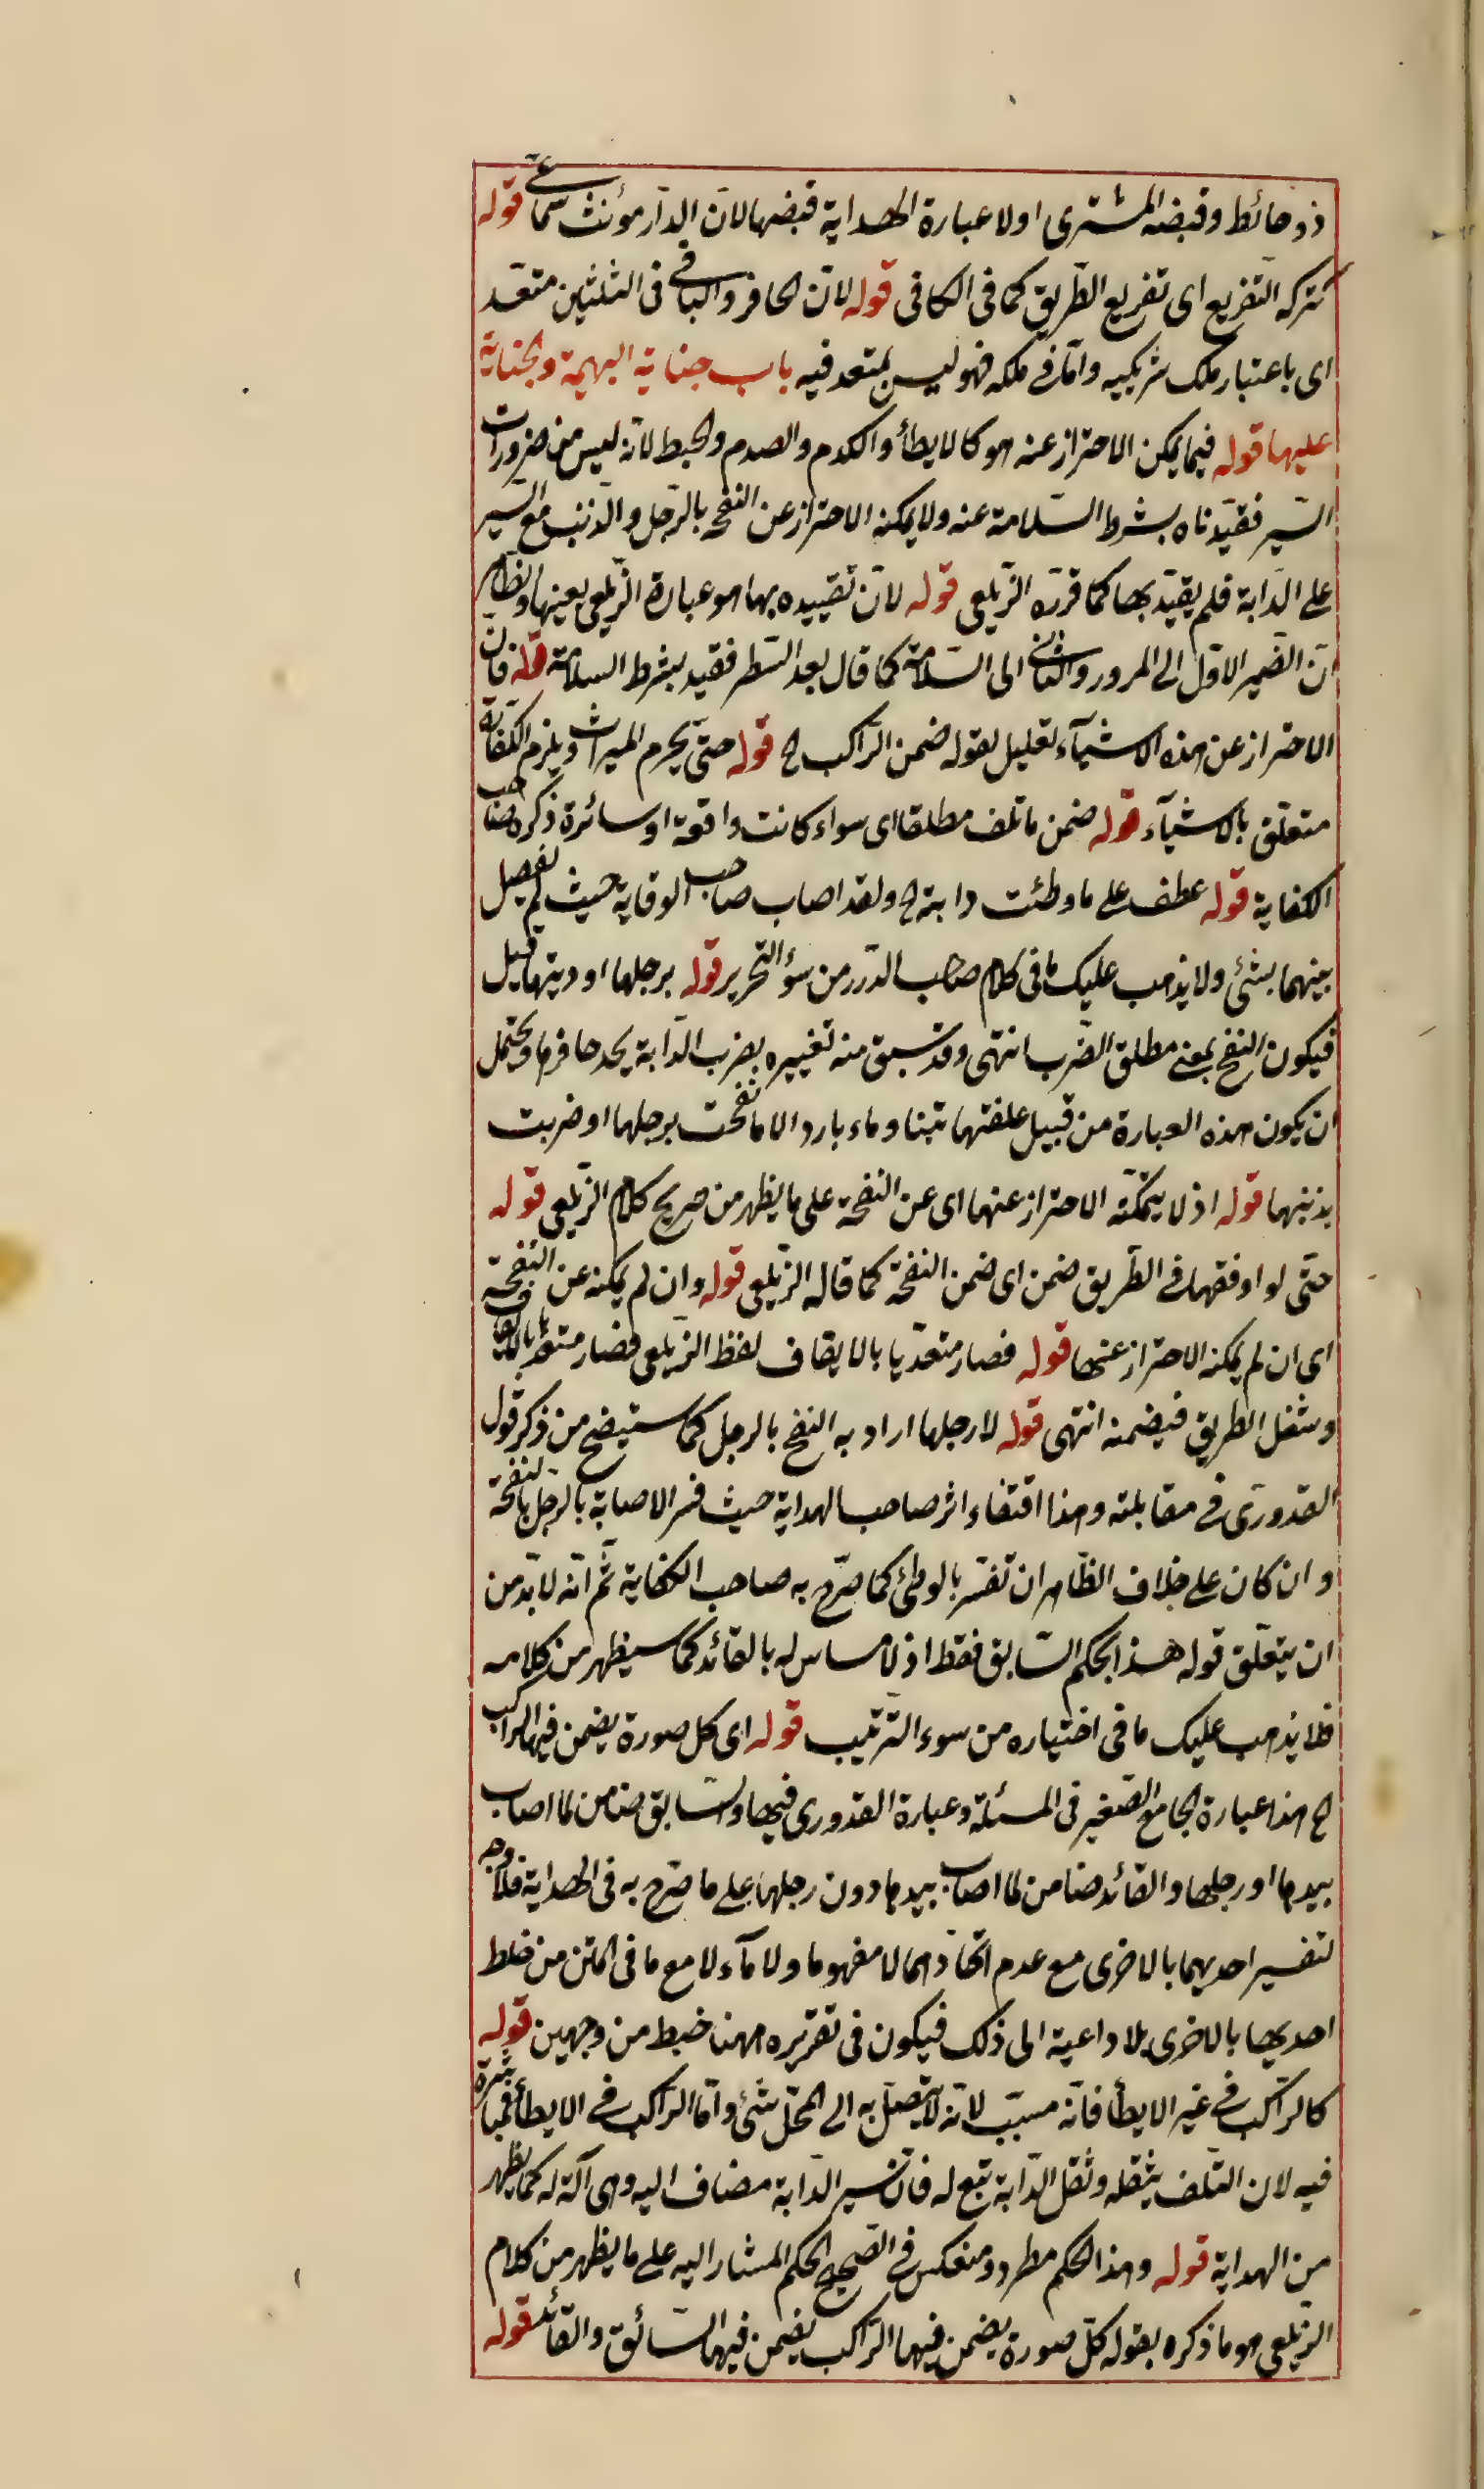 ذو حائط وقبضه المشترى اولا عبارة الهداية قبضها لان الدار مؤنث سماعى قوله
لتركه التفريغ اى تفريغ الطريق كما فى الكافى قوله لان الحافر والبانى فى الثلثين متعد
اى باعتبار ملك شريكيه واما فى ملكه فهو ليس بمتعد فيه باب جناية البهيمة والجناية
عليها قوله فيما يمكن الاحتراز عنه هو كالايطأ والكدم والصدم والخبط لانه ليس من ضرورات
السير فقيدناه بشرط السلامة عنه ولا يمكنه الاحتراز عن النفحة بالرجل والذنب مع السير
على الدابة فلم يقيد بها كما قرره الزيلعى قوله لان تقييده بها هو عبارة الزيلعى بعينها والظاهر
ان الضمير الاول الى المرور والثانى الى السلامة كما قال بعد السطر فقيد بشرط السلامة قوله فان
الاحتراز عن هذه الاشيآء تعليل لقوله ضمن الراكب الخ قوله حتى يحرم الميراث ويلزم الكفارة
متعلق بالاشيآء قوله ضمن ما تلف مطلقا اى سواء كانت واقعة او سائرة ذكره صاحب
الكفاية قوله عطف على ما وطئت دابته الخ ولقد اصاب صاحب الوقاية حيث لم يفصل
بينهما بشئ ولا يذهب عليك ما فى كلام صاحب الدرر من سوء التحرير قوله برجلها او ذنبها قيل
فيكون النفح بمعنى مطلق الضرب انتهى وقد سبق منه تفسيره بضرب الدابة بحد حافرها ويحتمل
ان يكون هذه العبارة من قبيل علفتها تبنا وماء باردا لا ما نفحت برجلها او ضربت
بذنبها قوله اذ لا يمكنه الاحتراز عنهما اى عن النفحة على ما يظهر من صريح كلام الزيلعى قوله
حتى لو اوقفها فى الطريق ضمن اى ضمن النفحة كما قاله الزيلعى قوله وان لم يمكنه عن النفحة
اى ان لم يمكنه الاحتراز عنها قوله فصار متعديا بالايقاف لفظ الزيلعى فصار متعديا بالايقاف
وشغل الطريق فيضمنه انتهى قوله لا رجلها اراد به النفح بالرجل كما سيتضح من ذكر قول
القدورى فى مقابلته وهذا اقتفاء اثر صاحب الهداية حيث فسر الاصابة بالرجل بالنفحة
وان كان على خلاف الظاهر ان تفسر بالوطئ كما صرح به صاحب الكفاية ثم انه لا بد من
ان يتعلق قوله هذا بحكم السابق فقط اذ لا مساس له بالقائد كما سيظهر من كلامه
فلا يذهب عليك ما فى اختياره من سوء الترتيب قوله اى كل صورة يضمن فيها الراكب
الخ هذا عبارة الجامع الصغير فى المسئلة وعبارة القدورى فيها والسابق ضامن لما اصاب
بيدها او رجلها والقائد ضامن لما اصاب بيدها دون رجلها على ما صرح به فى الهداية فلا وجه
لتفسير احديهما بالاخرى مع عدم اتحادهما لا مفهوما ولا مآء لا مع ما فى المتن من خلط
احديها بالاخرى بلا داعية الى ذلك فيكون فى تقريره ههنا خبط من وجهين قوله
كالراكب فى غير الايطأ فانه مسبب لانه لا يتصل به الى المحل شئ واما الراكب فى الايطأ فمباشرة
فيه لان التلف بثقله وثقل الدابة تبع له فان سير الدابة مضاف اليه وهى آلة له كما يظهر
من الهداية قوله وهذا الحكم مطرد ومنعكس فى الصحيح الحكم المشار اليه على ما يظهر من كلام
الزيلعى هو ما ذكره بقوله كل صورة يضمن فيها الراكب يضمن فيها السائق والقائد قوله